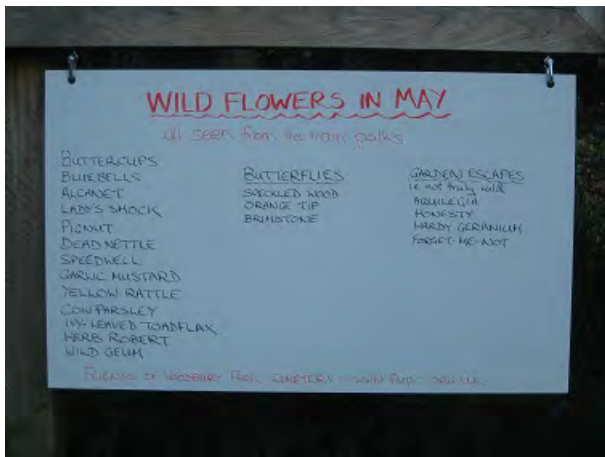 WILD FLOWERS IN MAY
all seen from the main paths
BUTTERCUPS
BLUEBELLS
ALCANET
LADY'S SMOCK
PIGNUT
DEAD NETTLE
SPEEDWELL
GARLIC MUSTARD
YELLOW RATTLE
COW PARSLEY
IVY-LEAVED TOADFLAX
HERB ROBERT
WILD GEUM
BUTTERFLIES
SPECKLED WOOD
ORANGE TIP
BRIMSTONE
GARDEN ESCAPES
i.e not truly wild
AQUILEGIA
HONESTY
HARDY GERANIUM
FORGET-ME-NOT
FRIENDS OF WOODBURY PARK CEMETERY